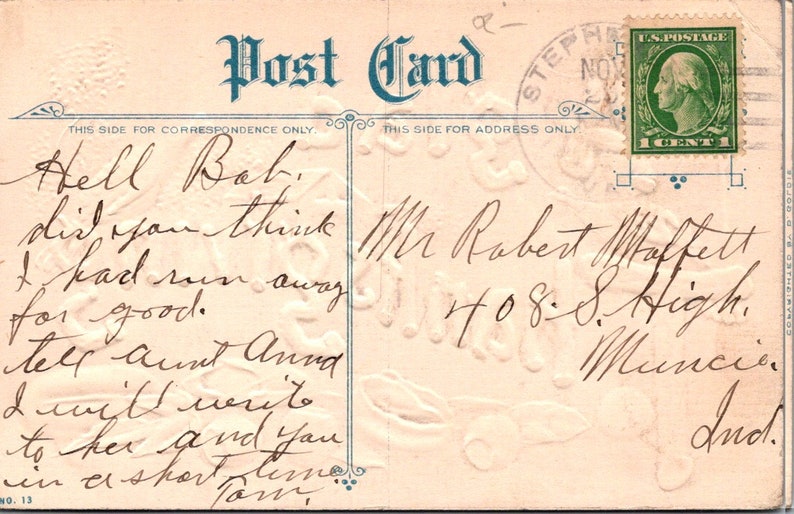 Post Card
THIS SIDE FOR CORRESPONDENCE ONLY.
THIS SIDE FOR ADDRESS ONLY.
STEPH
NOV
U.S. POSTAGE
1 CENT 1
Hell Bob.
did you think
I had run away
for good.
tell aunt Anna
I will write
to her and you
in a short time
Tom.
Mr Robert Moffett
408. S. High.
Muncie.
Ind.
NO. 13